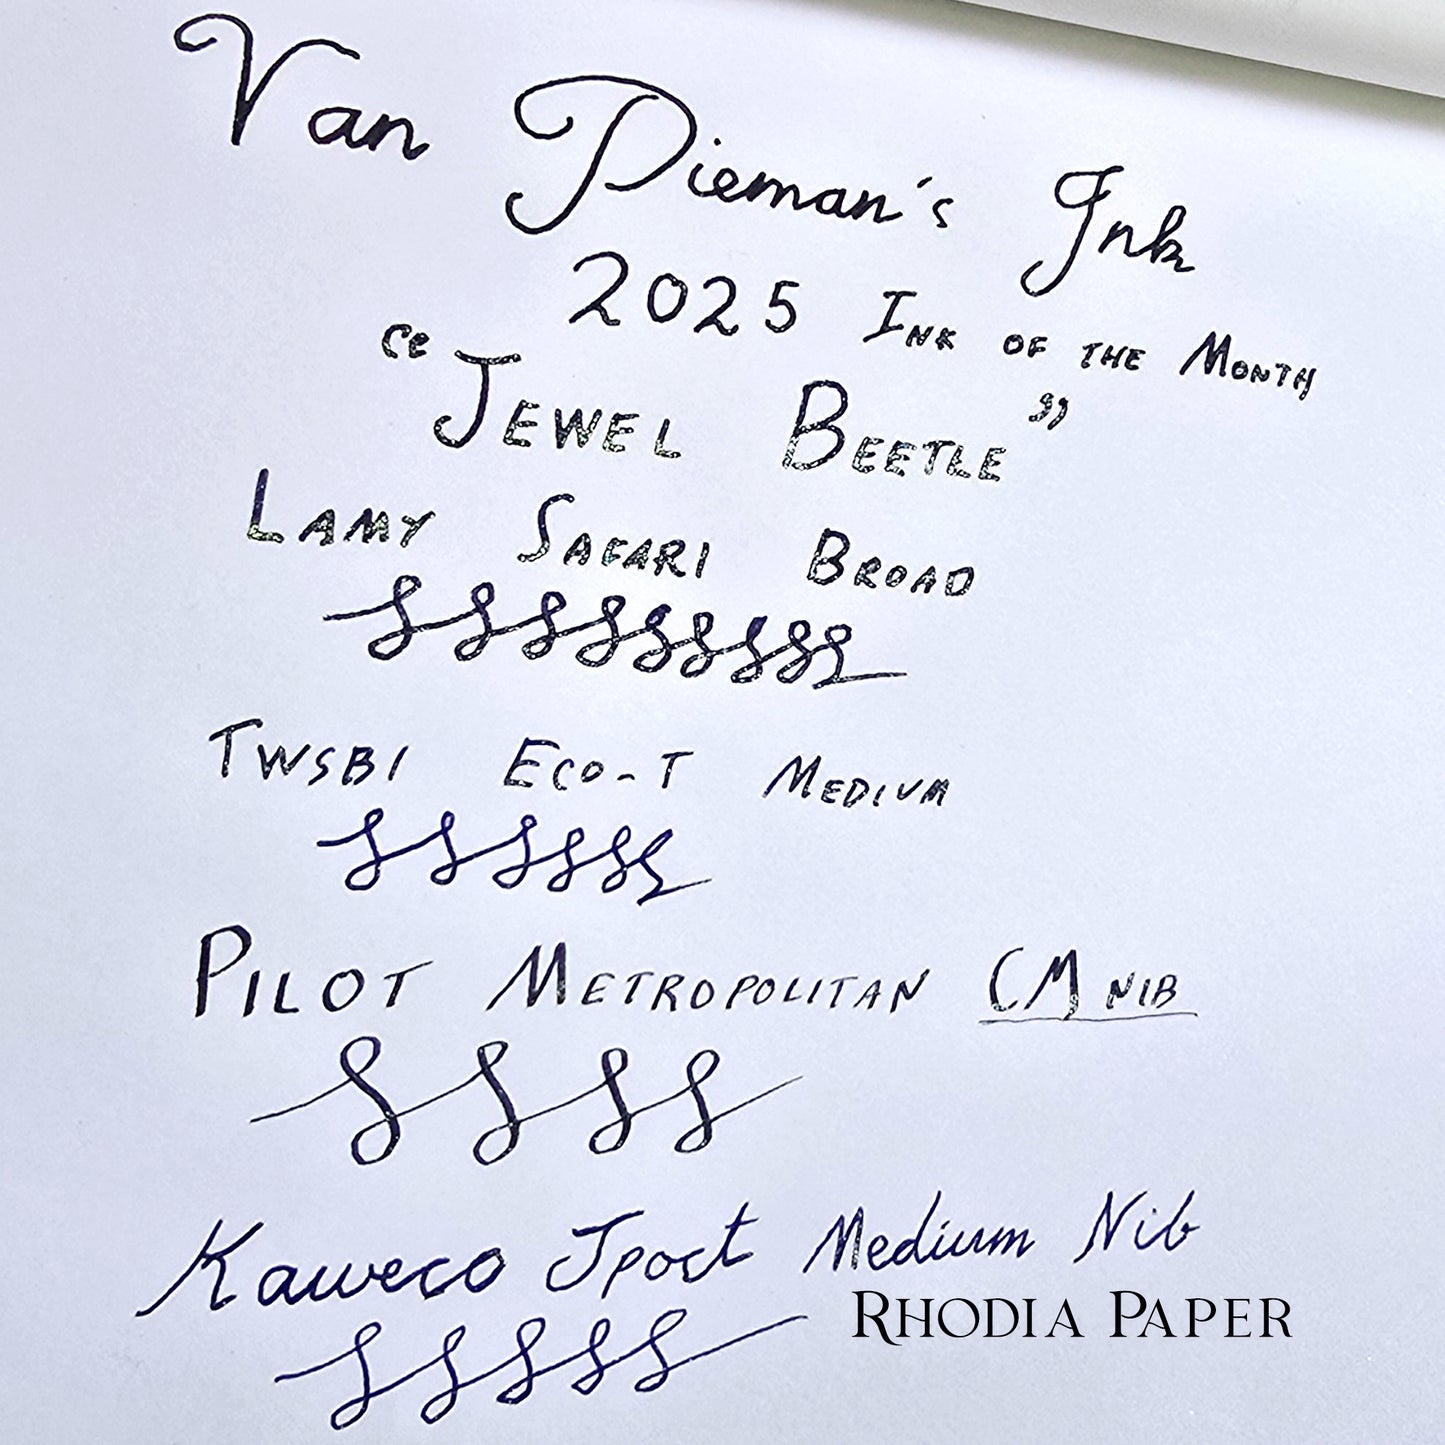 Van Dieman's Ink
2025 Ink of the Month
"Jewel Beetle"
Lamy Safari Broad
TWSBI Eco-T Medium
Pilot Metropolitan CM nib
Kaweco Sport Medium Nib
Rhodia Paper